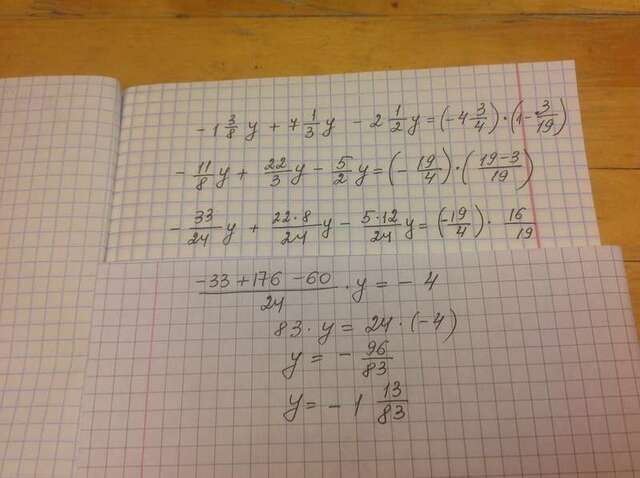 -1 3/8 y + 7 1/3 y - 2 1/2 y = (-4 3/4) · (1 - 3/19)
- 11/8 y + 22/3 y - 5/2 y = (- 19/4) · (19-3/19)
- 33/24 y + 22·8/24 y - 5·12/24 y = (-19/4) · 16/19
-33+176-60/24 · y = -4
83 · y = 24 · (-4)
y = - 96/83
y = - 1 13/83